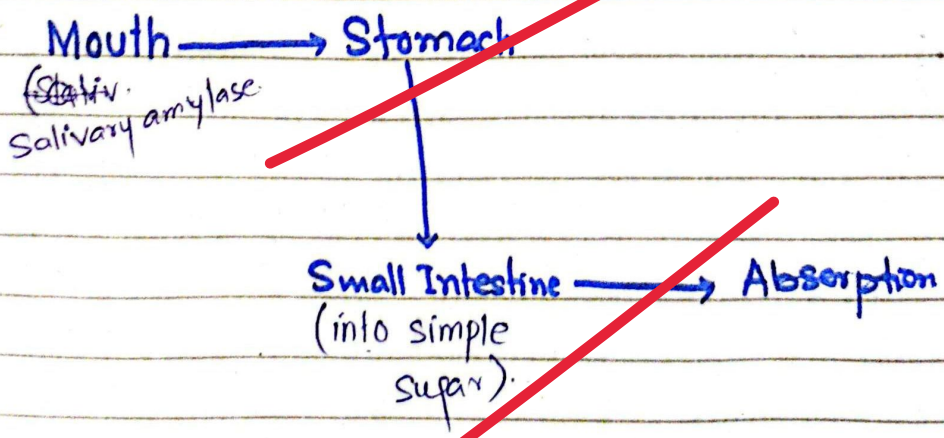 Mouth → Stomach
(Saliv.
Salivary amylase
Small Intestine → Absorption
(into simple
sugar).